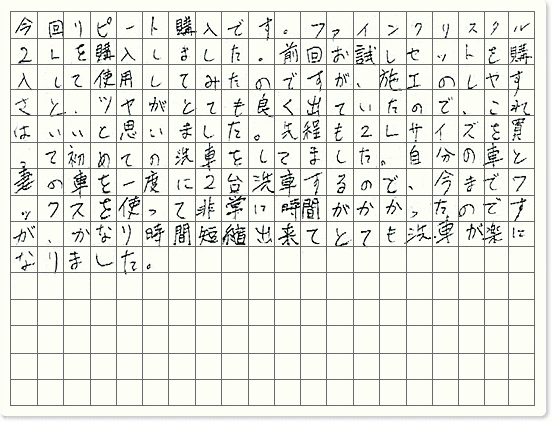 今回リピート購入です。ファインクリスタル
2Lを購入しました。前回お試しセットを購
入して使用してみたのですが、施工のしやす
さと、ツヤがとても良く出ていたので、これ
はいいと思いました。先程も2Lサイズを買
って初めての洗車をしてました。自分の車と
妻の車を一度に2台洗車するので、今までワ
ックスを使って非常に時間がかかったのです
が、かなり時間短縮出来てとても洗車が楽に
なりました。